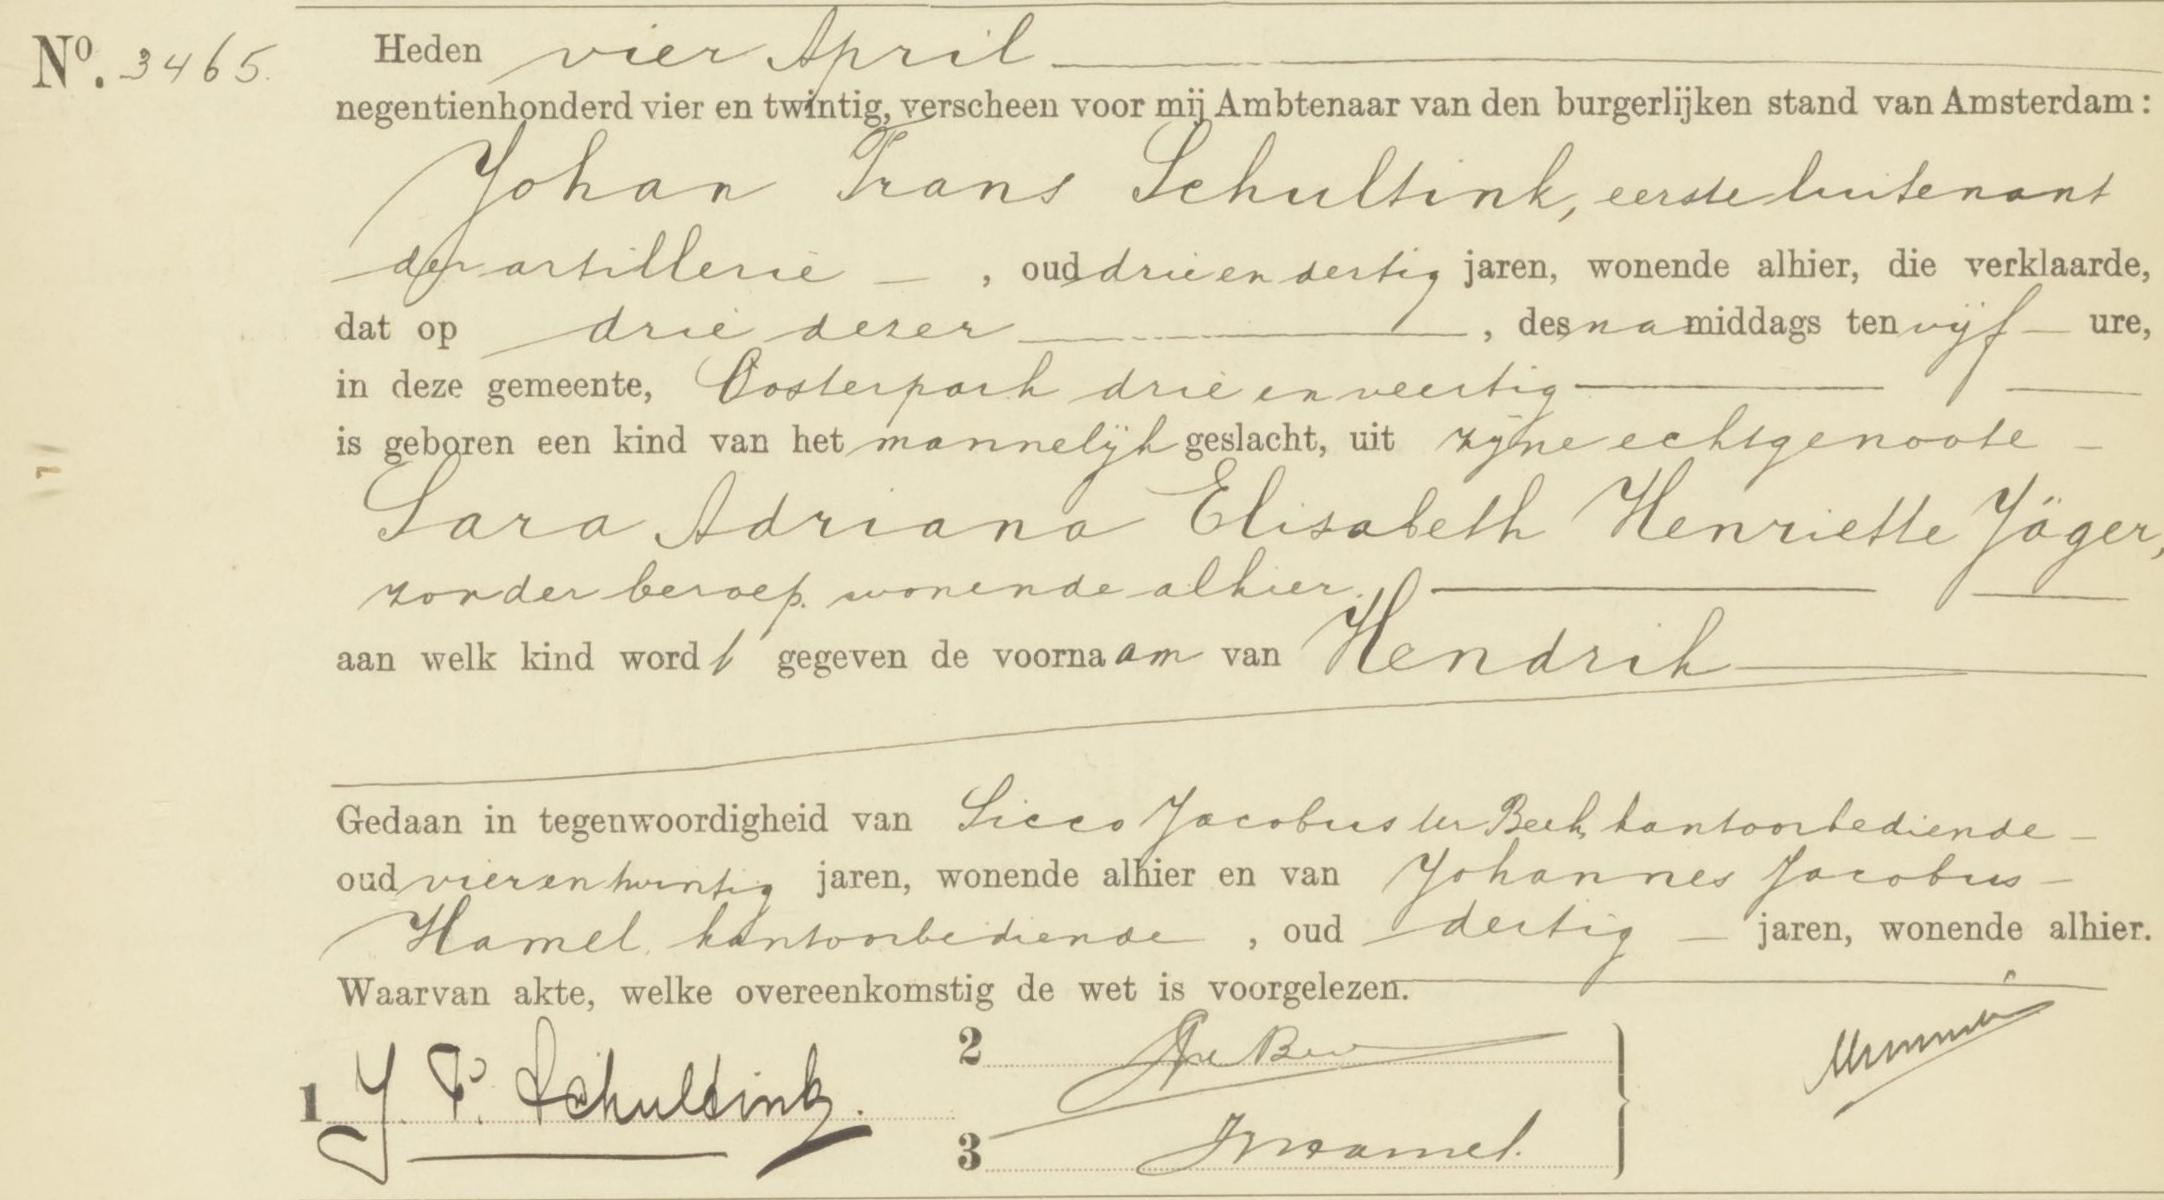 No. 3465. Heden vier April
negentienhonderd vier en twintig, verscheen voor mij Ambtenaar van den burgerlijken stand van Amsterdam:
Johan Frans Schultink, eerste luitenant
der artillerie, oud drie en dertig jaren, wonende alhier, die verklaarde,
dat op drie dezer, des namiddags ten vijf ure,
in deze gemeente, Oosterpark drie en veertig
is geboren een kind van het mannelijk geslacht, uit zijne echtgenoote
Sara Adriana Elisabeth Henriette Jäger,
zonder beroep, wonende alhier.
aan welk kind wordt gegeven de voornaam van Hendrik
Gedaan in tegenwoordigheid van Sicco Jacobus ter Beek, kantoorbediende
oud vier en twintig jaren, wonende alhier en van Johannes Jacobus
Hamel, kantoorbediende, oud dertig jaren, wonende alhier.
Waarvan akte, welke overeenkomstig de wet is voorgelezen.
1 J. F. Schultink.
2
3 JJHamel.